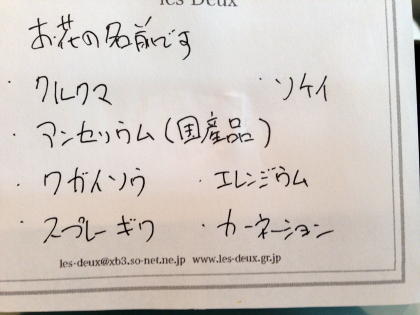 les Deux
お花の名前です
・クルクマ ・ソケイ
・アンセリウム(国産品)
・ワガイソウ ・エレンジウム
・スプレーギク ・カーネーション
les-deux@xb3.so-net.ne.jp www.les-deux.gr.jp